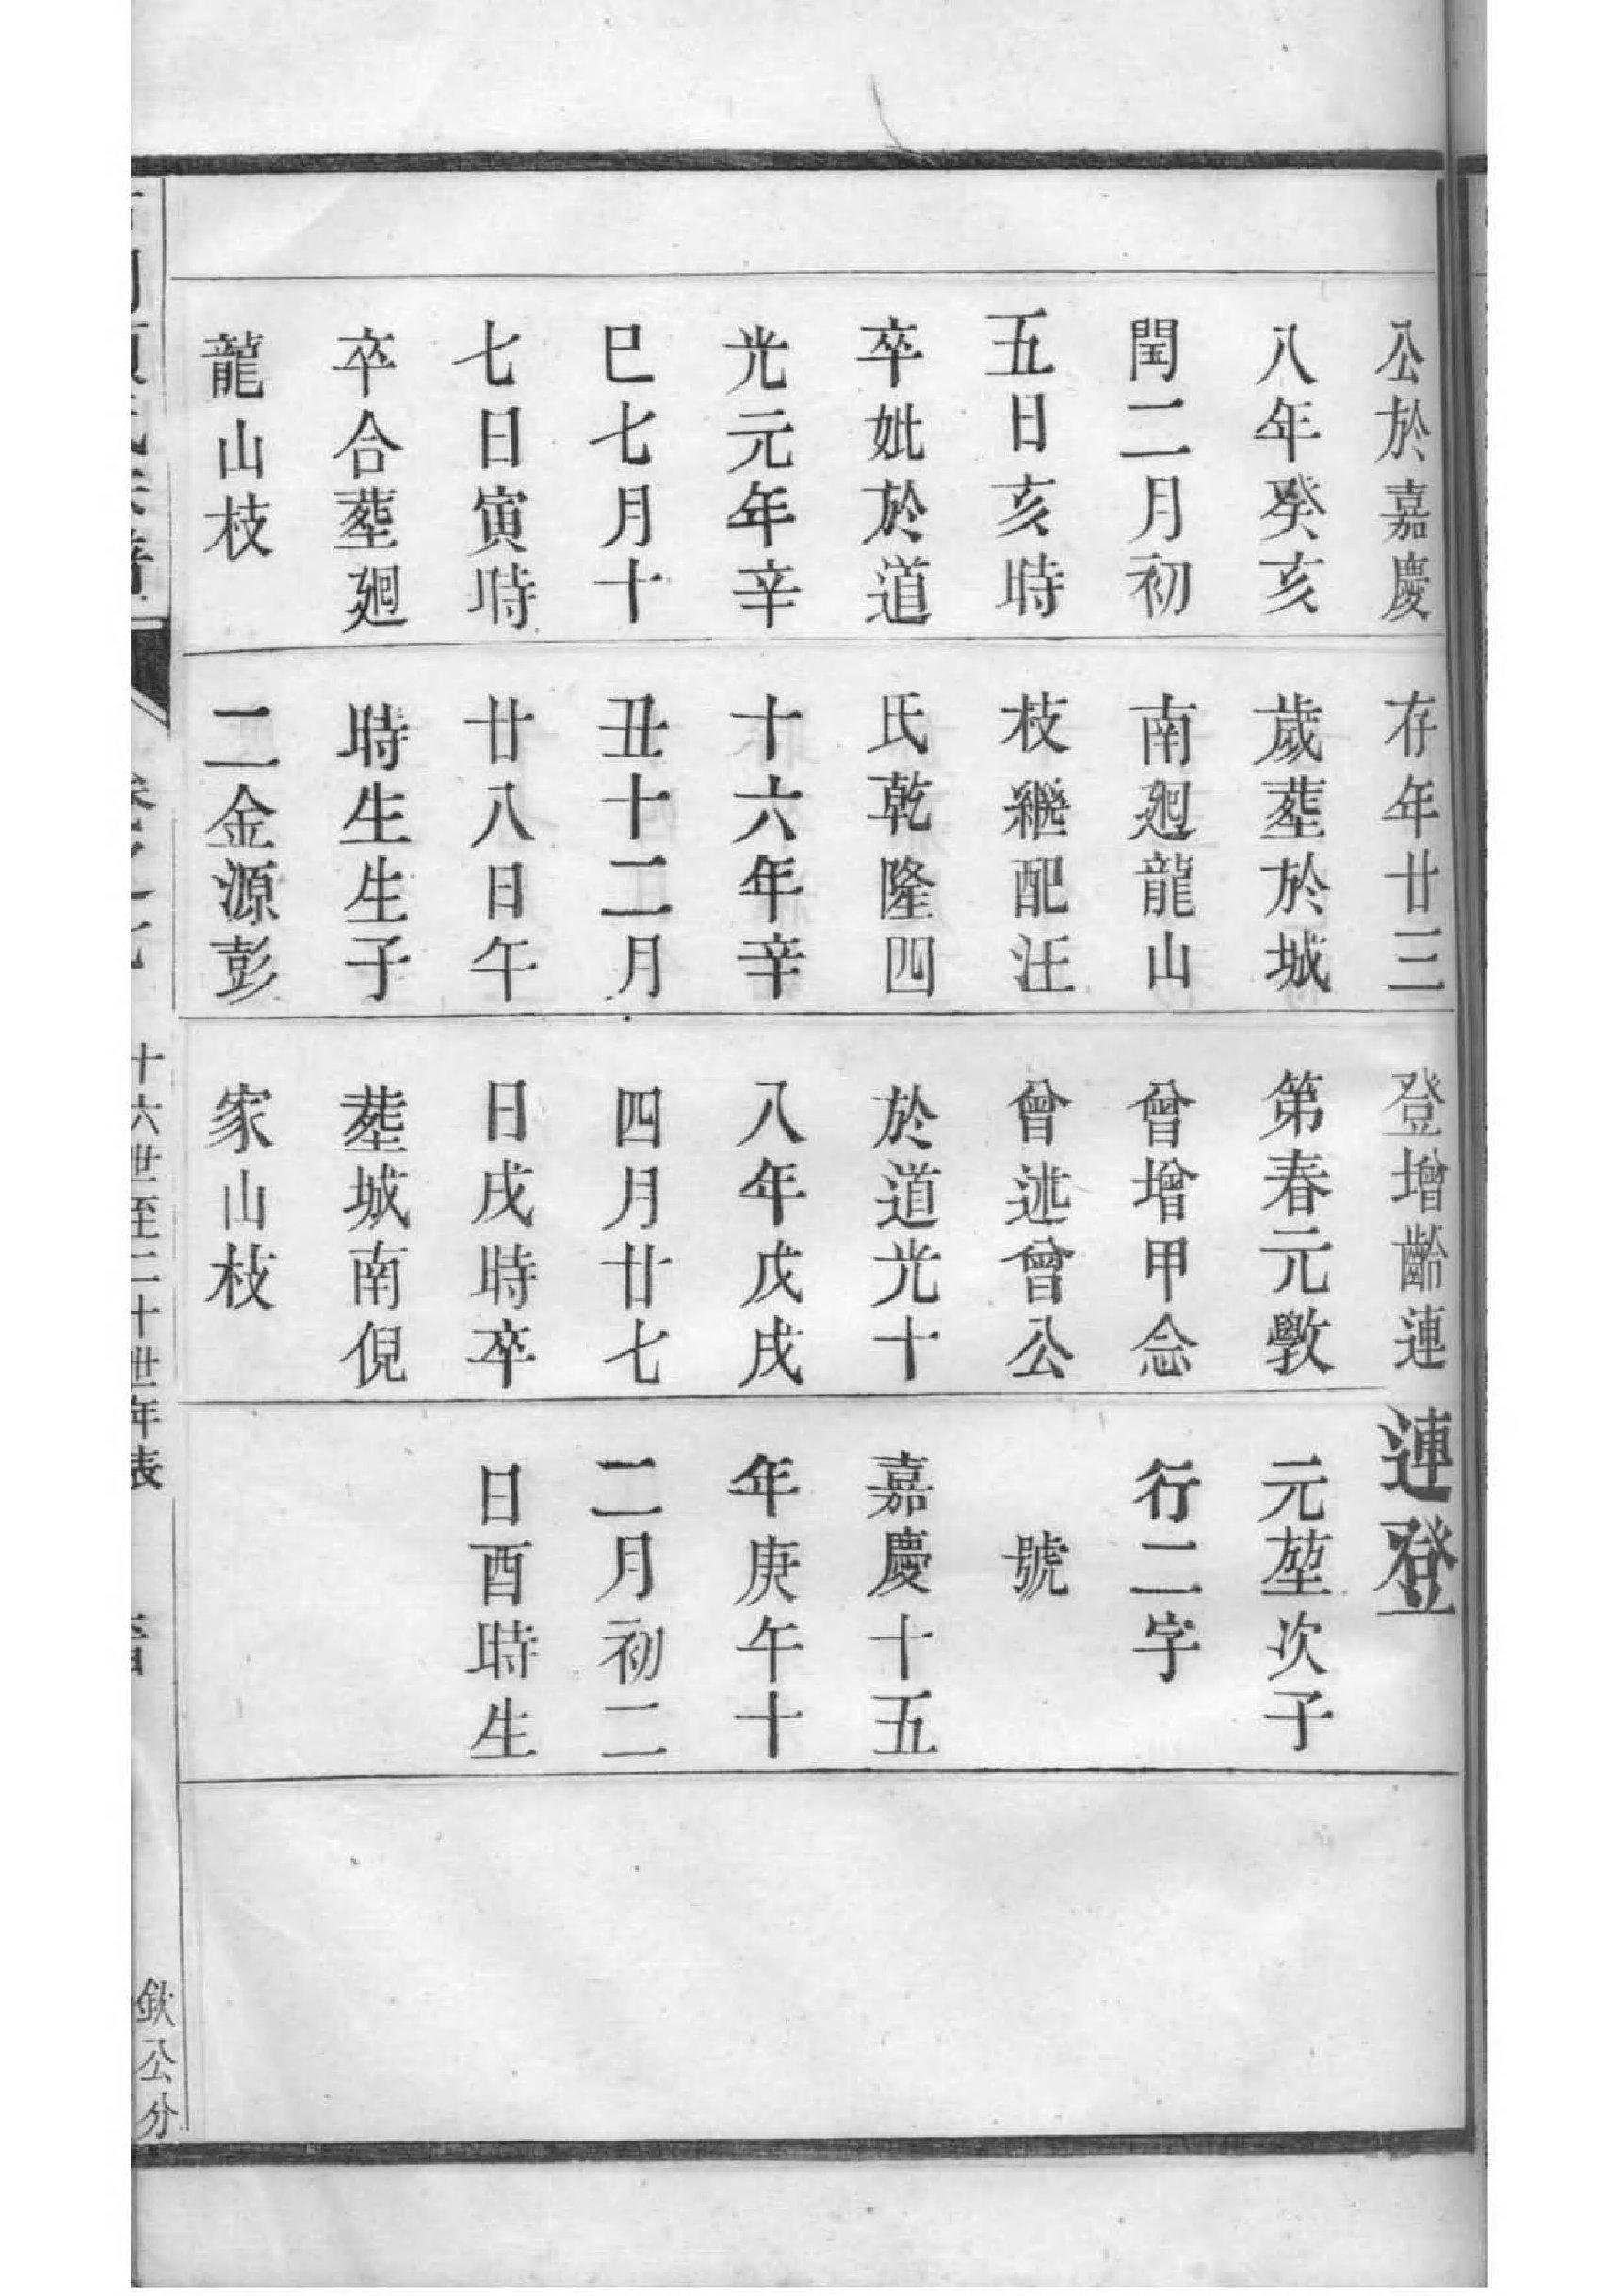 公於嘉慶
八年癸亥
閏二月初
五日亥時
卒妣於道
光元年辛
巳七月十
七日寅時
卒合塟廻
龍山枝
存年廿三
歲塟於城
南廻龍山
枝繼配汪
氏乾隆四
十六年辛
丑十二月
廿八日午
時生生子
二金源彭
登增齡連
第春元斆
曾增甲念
曾述曾公
於道光十
八年戊戌
四月廿七
日戌時卒
塟城南倪
家山枝
連登
元堃次子
行二字
號
嘉慶十五
年庚午十
二月初二
日酉時生
十六世至二十世年表
欽公分